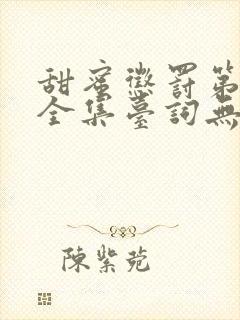 甜蜜懲罰第
全集臺詞無
陳紫菀